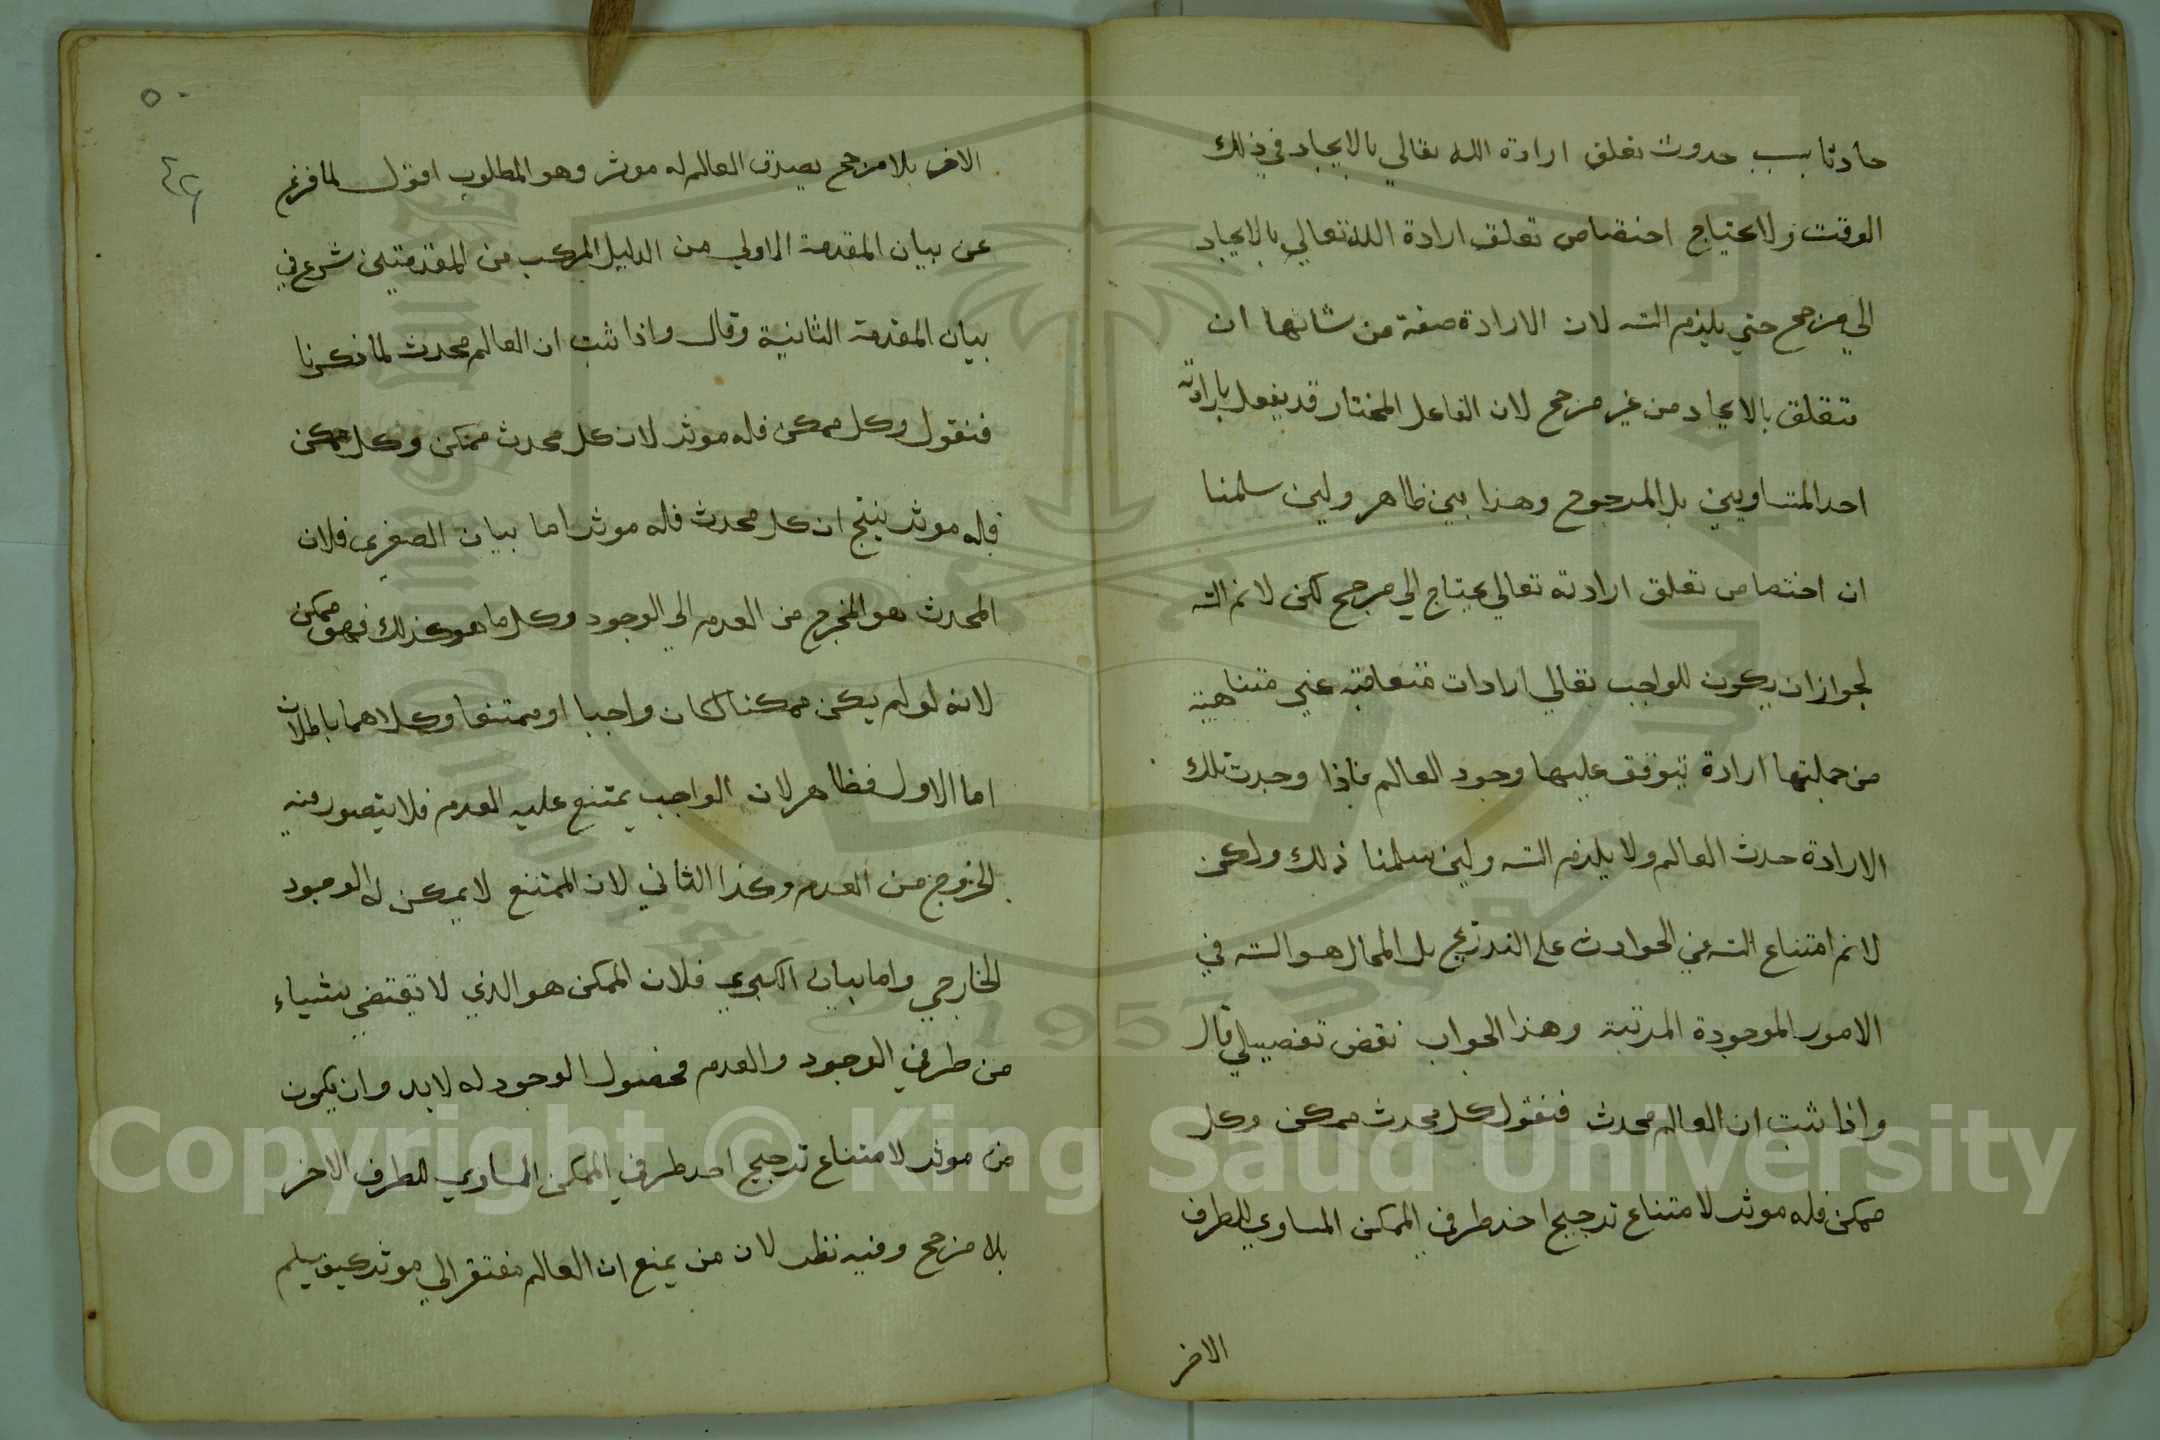 حادثا بسبب حدوث تعلق ارادة الله تعالي بالايجاد في ذلك
الوقت ولا يحتياج اختصاص تعلق ارادة الله تعالي بالايجاد
الي مرجح حتي يلزم التسه لان الارادة صفة من شانها ان
تتعلق بالايجاد من غير مرجح لان الفاعل المختار قد يفعل بارادته
احد المتساويين بل المرجوح وهذا بين ظاهر ولين سلمنا
ان اختصاص تعلق ارادته تعالي يحتاج الي مرجح لكن لا نم التسه
لجواز ان يكون للواجب تعالي ارادات متعاقبة غير متناهية
من جملتها ارادة يتوقف عليها وجود العالم فاذا وجدت تلك
الارادة حدث العالم ولا يلزم التسه ولين سلمنا ذلك ولكن
لا نم امتناع التسه في الحوادث علي التدريج بل المحال هو التسه في
الامور الموجودة المرتبة وهذا الجواب نقض تفصيلي قال
واذا ثبت ان العالم محدث فنقول كل محدث ممكن وكل
ممكن فله موثر لامتناع ترجيح احد طرفي الممكن المساوي للطرف
الاخر
٥٠
٤٩
الاخر بلا مرجح يصدق العالم له موثر وهو المطلوب اقول لما فرغ
عن بيان المقدمة الاولي من الدليل المركب من المقدمتين شرع في
بيان المقدمة الثانية وقال واذا ثبت ان العالم محدث لما ذكرنا
فنقول وكل ممكن فله موثر لان كل محدث ممكن وكل ممكن
فله موثر ينتج ان كل محدث فله موثر اما بيان الصغري فلان
المحدث هو المخرج من العدم الي الوجود وكل ما هو كذلك فهو ممكن
لانه لو لم يكن ممكنا لكان واجبا او ممتنعا وكلاهما باطلان
اما الاول فظاهر لان الواجب يمتنع عليه العدم فلا يتصور منه
الخروج من العدم وكذا الثاني لان الممتنع لا يمكن له الوجود
الخارجي واما بيان الكبري فلان الممكن هو الذي لا تقتضي شياء
من طرفي الوجود والعدم فحصول الوجود له لا بد وان يكون
من موثر لامتناع ترجيح احد طرفي الممكن المساوي للطرف الاخر
بلا مرجح وفيه نظر لان من يمنع ان العالم مفتقر الي موثر كيف يسلم
Copyright © King Saud University
King Saud University
1957